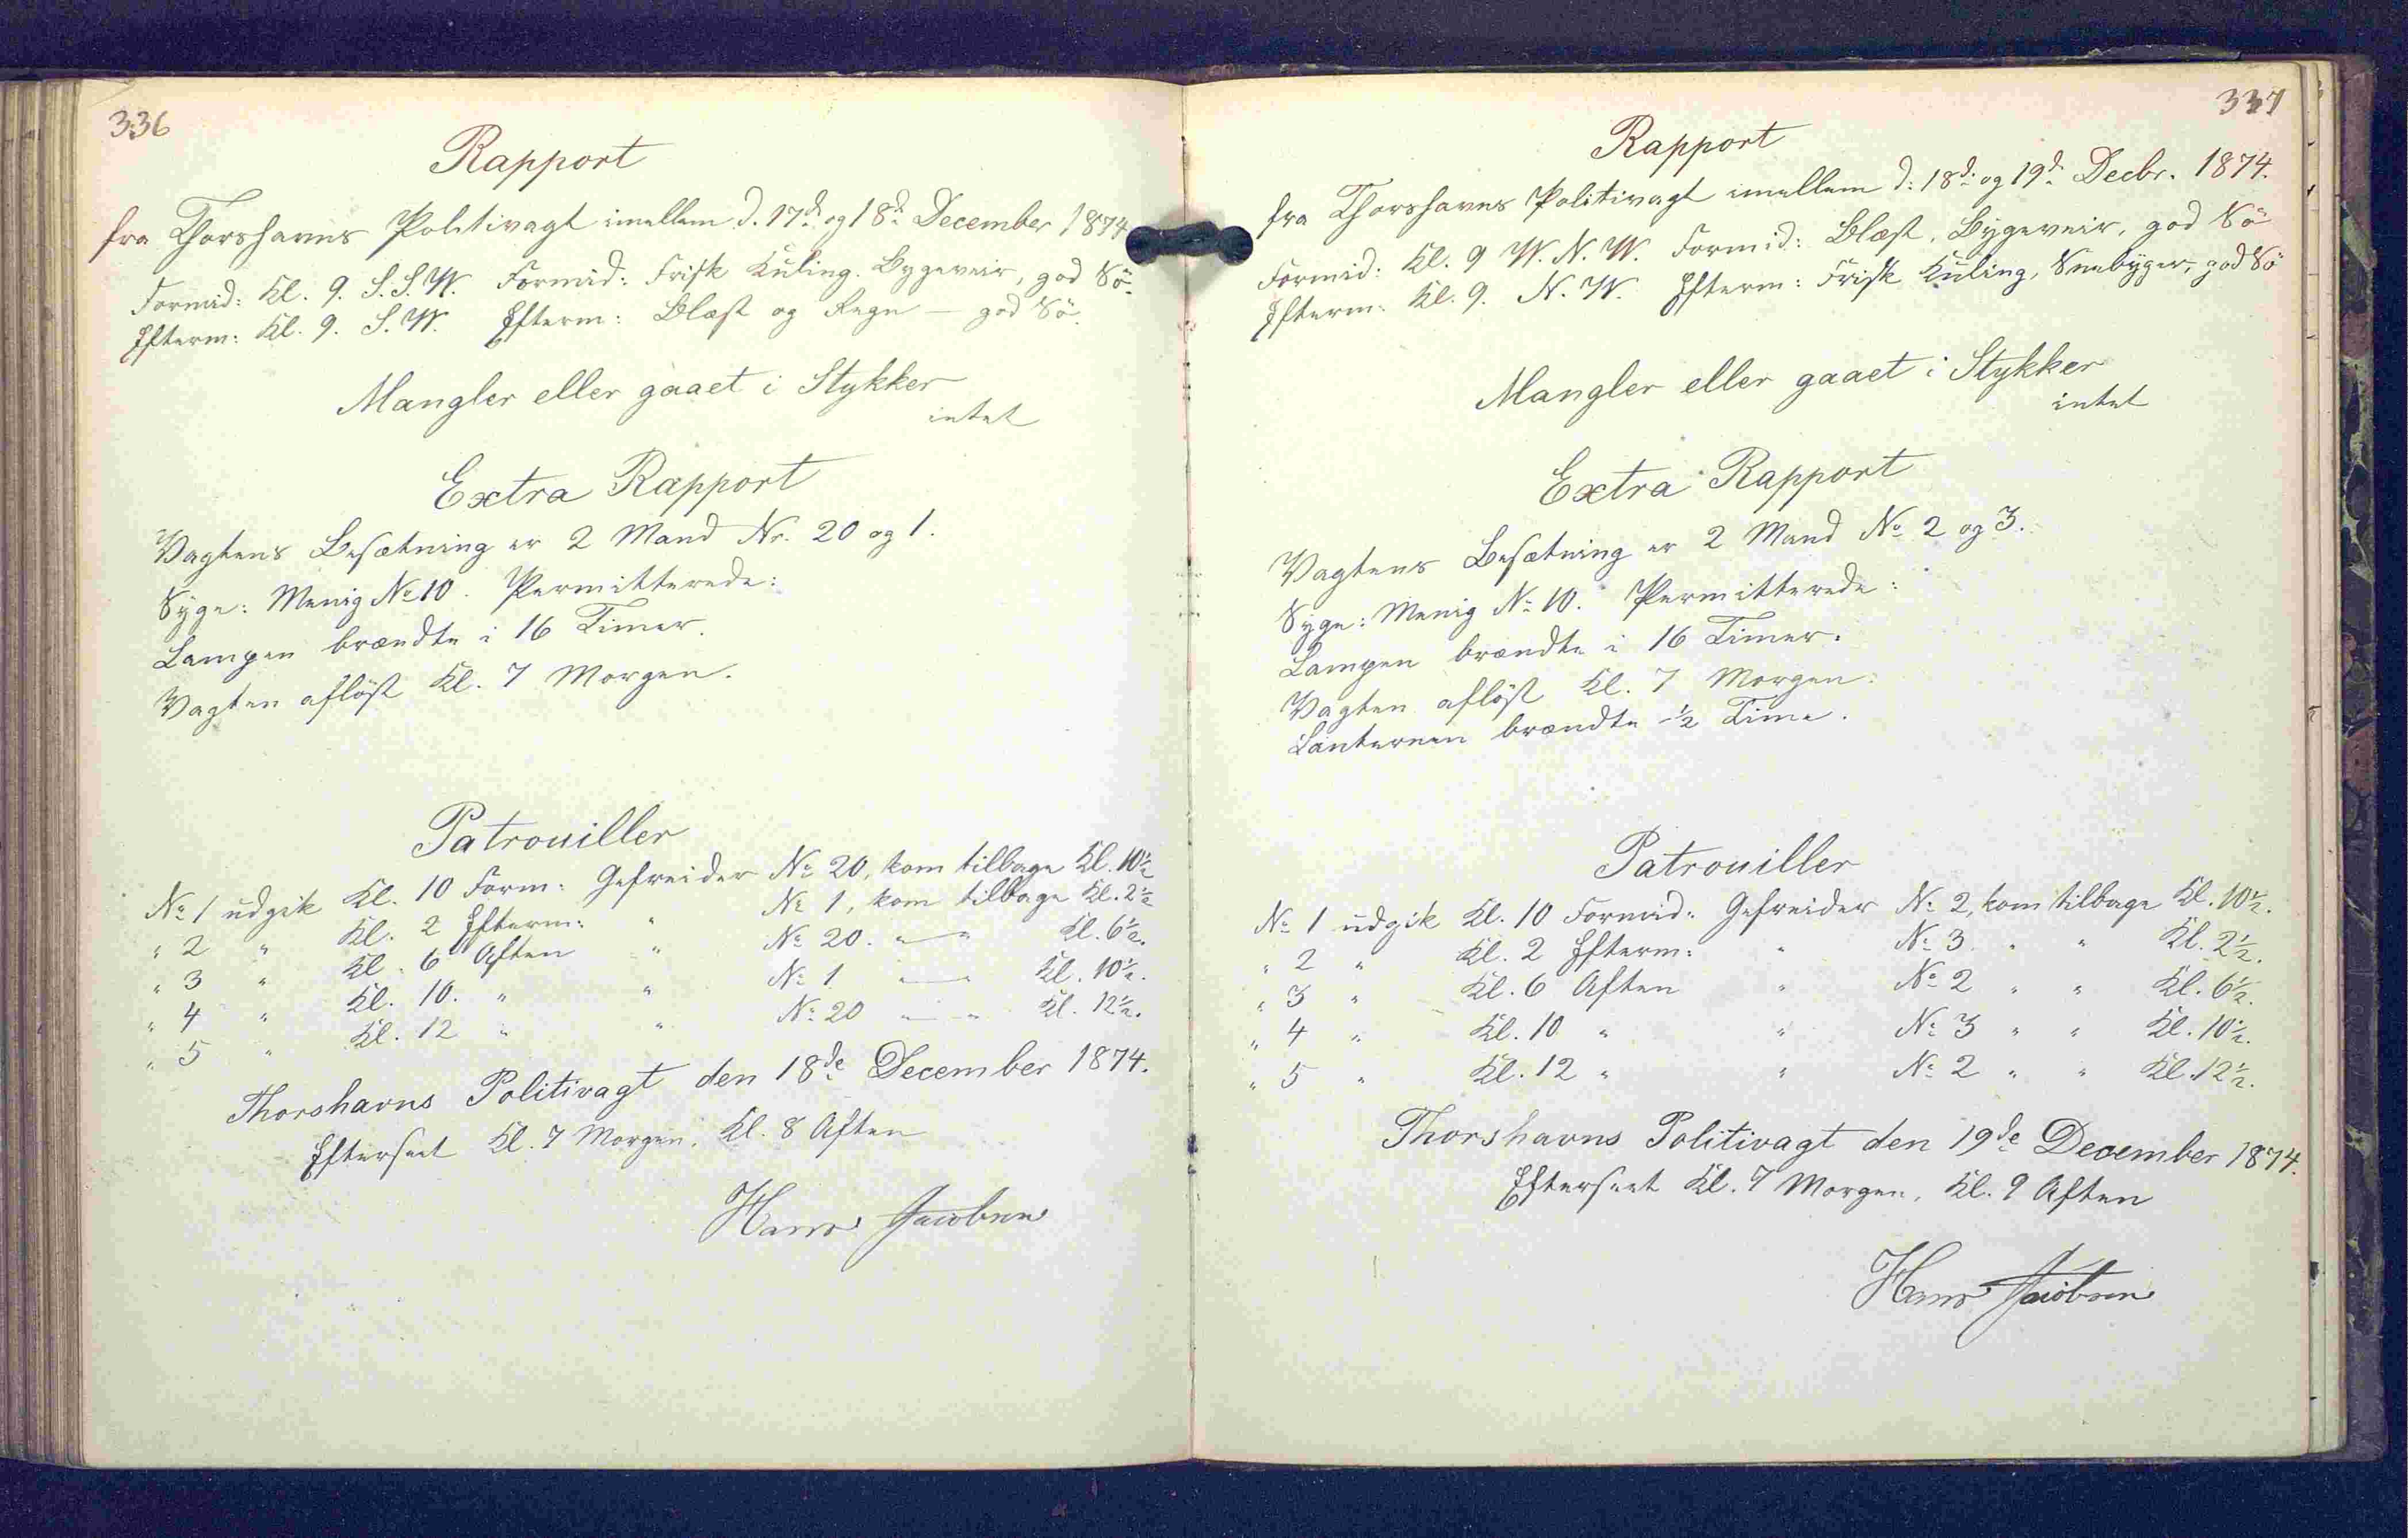 336
Rapport
fra Thorshavns Politivagt imellem d. 17d. og 18d. December 1874
Formid: Kl. 9. S.S.W. Formid: Frisk Kuling. Bygeveir, god Sö.
Efterm: Kl. 9. S.W. Efterm: Blæst og Regn — god Sö.
Mangler eller gaaet i Stykker
intet
Extra Rapport
Vagtens Besætning er 2 Mand Nr. 20 og 1.
Syge: Menig No 10. Permitterede:
Lampen brændte i 16 Timer.
Vagten aflöst Kl. 7 Morgen.
Patrouiller
No 1 udgik Kl. 10 Form: Gefreider No 20, kom tilbage Kl. 10½
" 2 " Kl. 2 Efterm: " No 1, kom tilbage Kl. 2½
" 3 " Kl. 6 Aften " No 20. " — " Kl. 6½.
" 4 " Kl. 10. " " No 1 " — " Kl. 10½.
" 5 " Kl. 12 " " No 20 " — " Kl. 12½.
Thorshavns Politivagt den 18de December 1874.
Efterseet Kl. 7 Morgen. Kl. 8 Aften
Hans Jacobsen
337
Rapport
fra Thorshavns Politivagt imellem d: 18d. og 19d. Decbr. 1874.
Formid: Kl. 9 W.N.W. Formid: Blæst, Bygeveir, god Sö
Efterm: Kl. 9. N.W. Efterm: Frisk Kuling, Sneebyger, god Sö
Mangler eller gaaet i Stykker
intet
Extra Rapport
Vagtens Besætning er 2 Mand No 2 og 3.
Syge: Menig No 10. Permitterede:
Lampen brændte i 16 Timer.
Vagten aflöst Kl. 7 Morgen.
Lanternen brændte ½ Time.
Patrouiller
No 1 udgik Kl. 10 Formid: Gefreider No 2, kom tilbage Kl. 10½.
" 2 " Kl. 2 Efterm: " No 3 " " Kl. 2½.
" 3 " Kl. 6 Aften " No 2 " " Kl. 6½.
" 4 " Kl. 10 " " No 3 " " Kl. 10½.
" 5 " Kl. 12 " " No 2 " " Kl. 12½.
Thorshavns Politivagt den 19de December 1874.
Efterseet Kl. 7 Morgen, Kl. 9 Aften
Hans Jacobsen